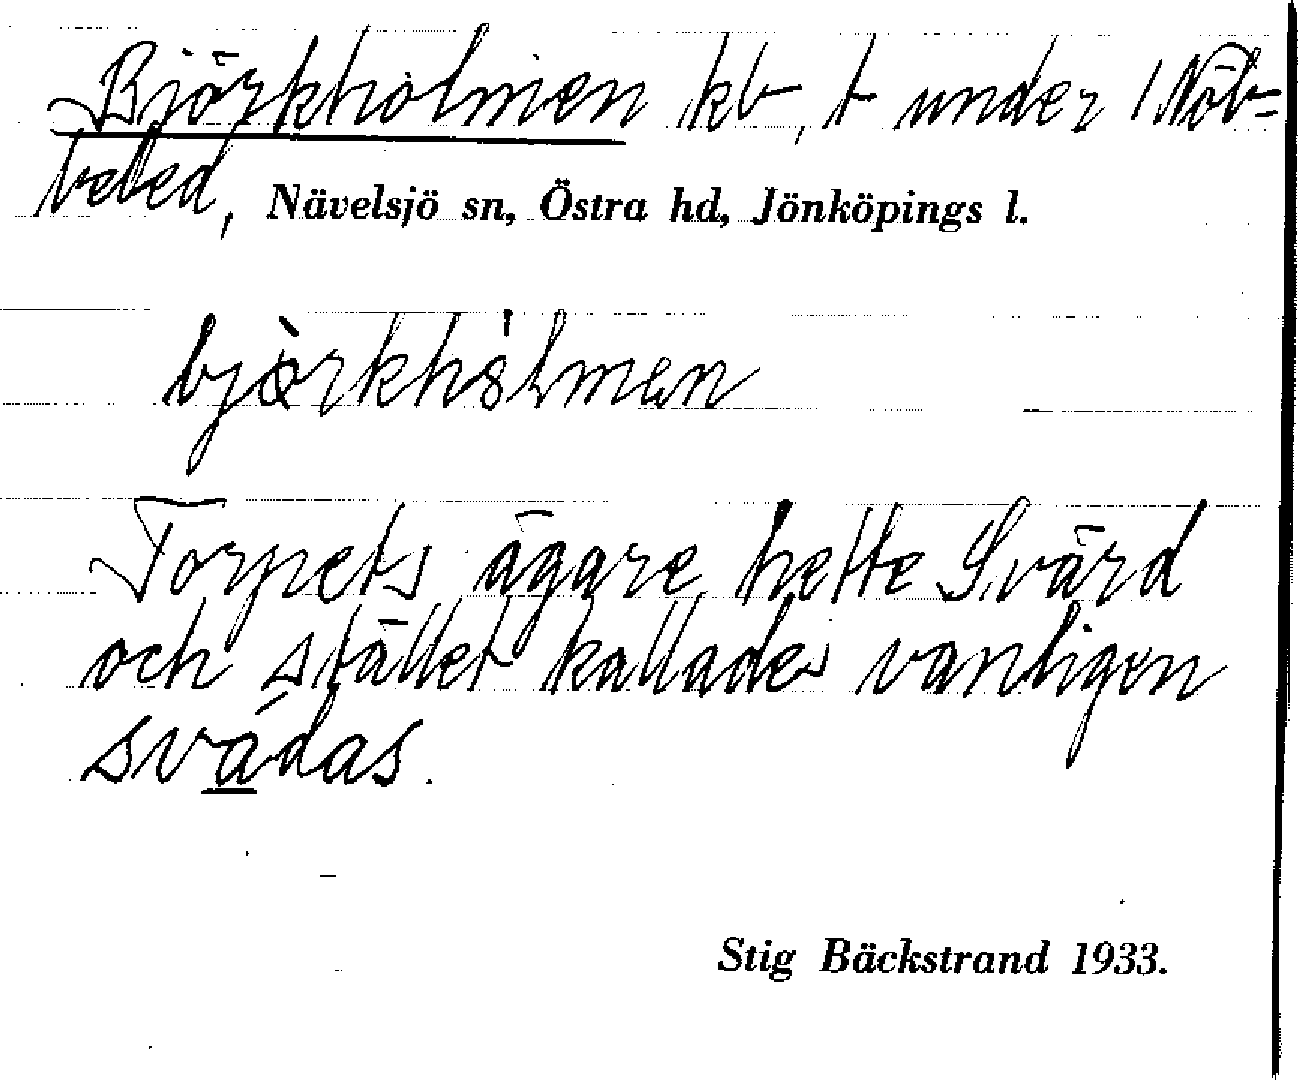 Björkholmen kb, t under 1 Nöb-
beled, Nävelsjö sn, Östra hd, Jönköpings l.
bjòrkhólmen
Torpets ägare hette Svärd
och stället kallades vanligen
svádas.
Stig Bäckstrand 1933.